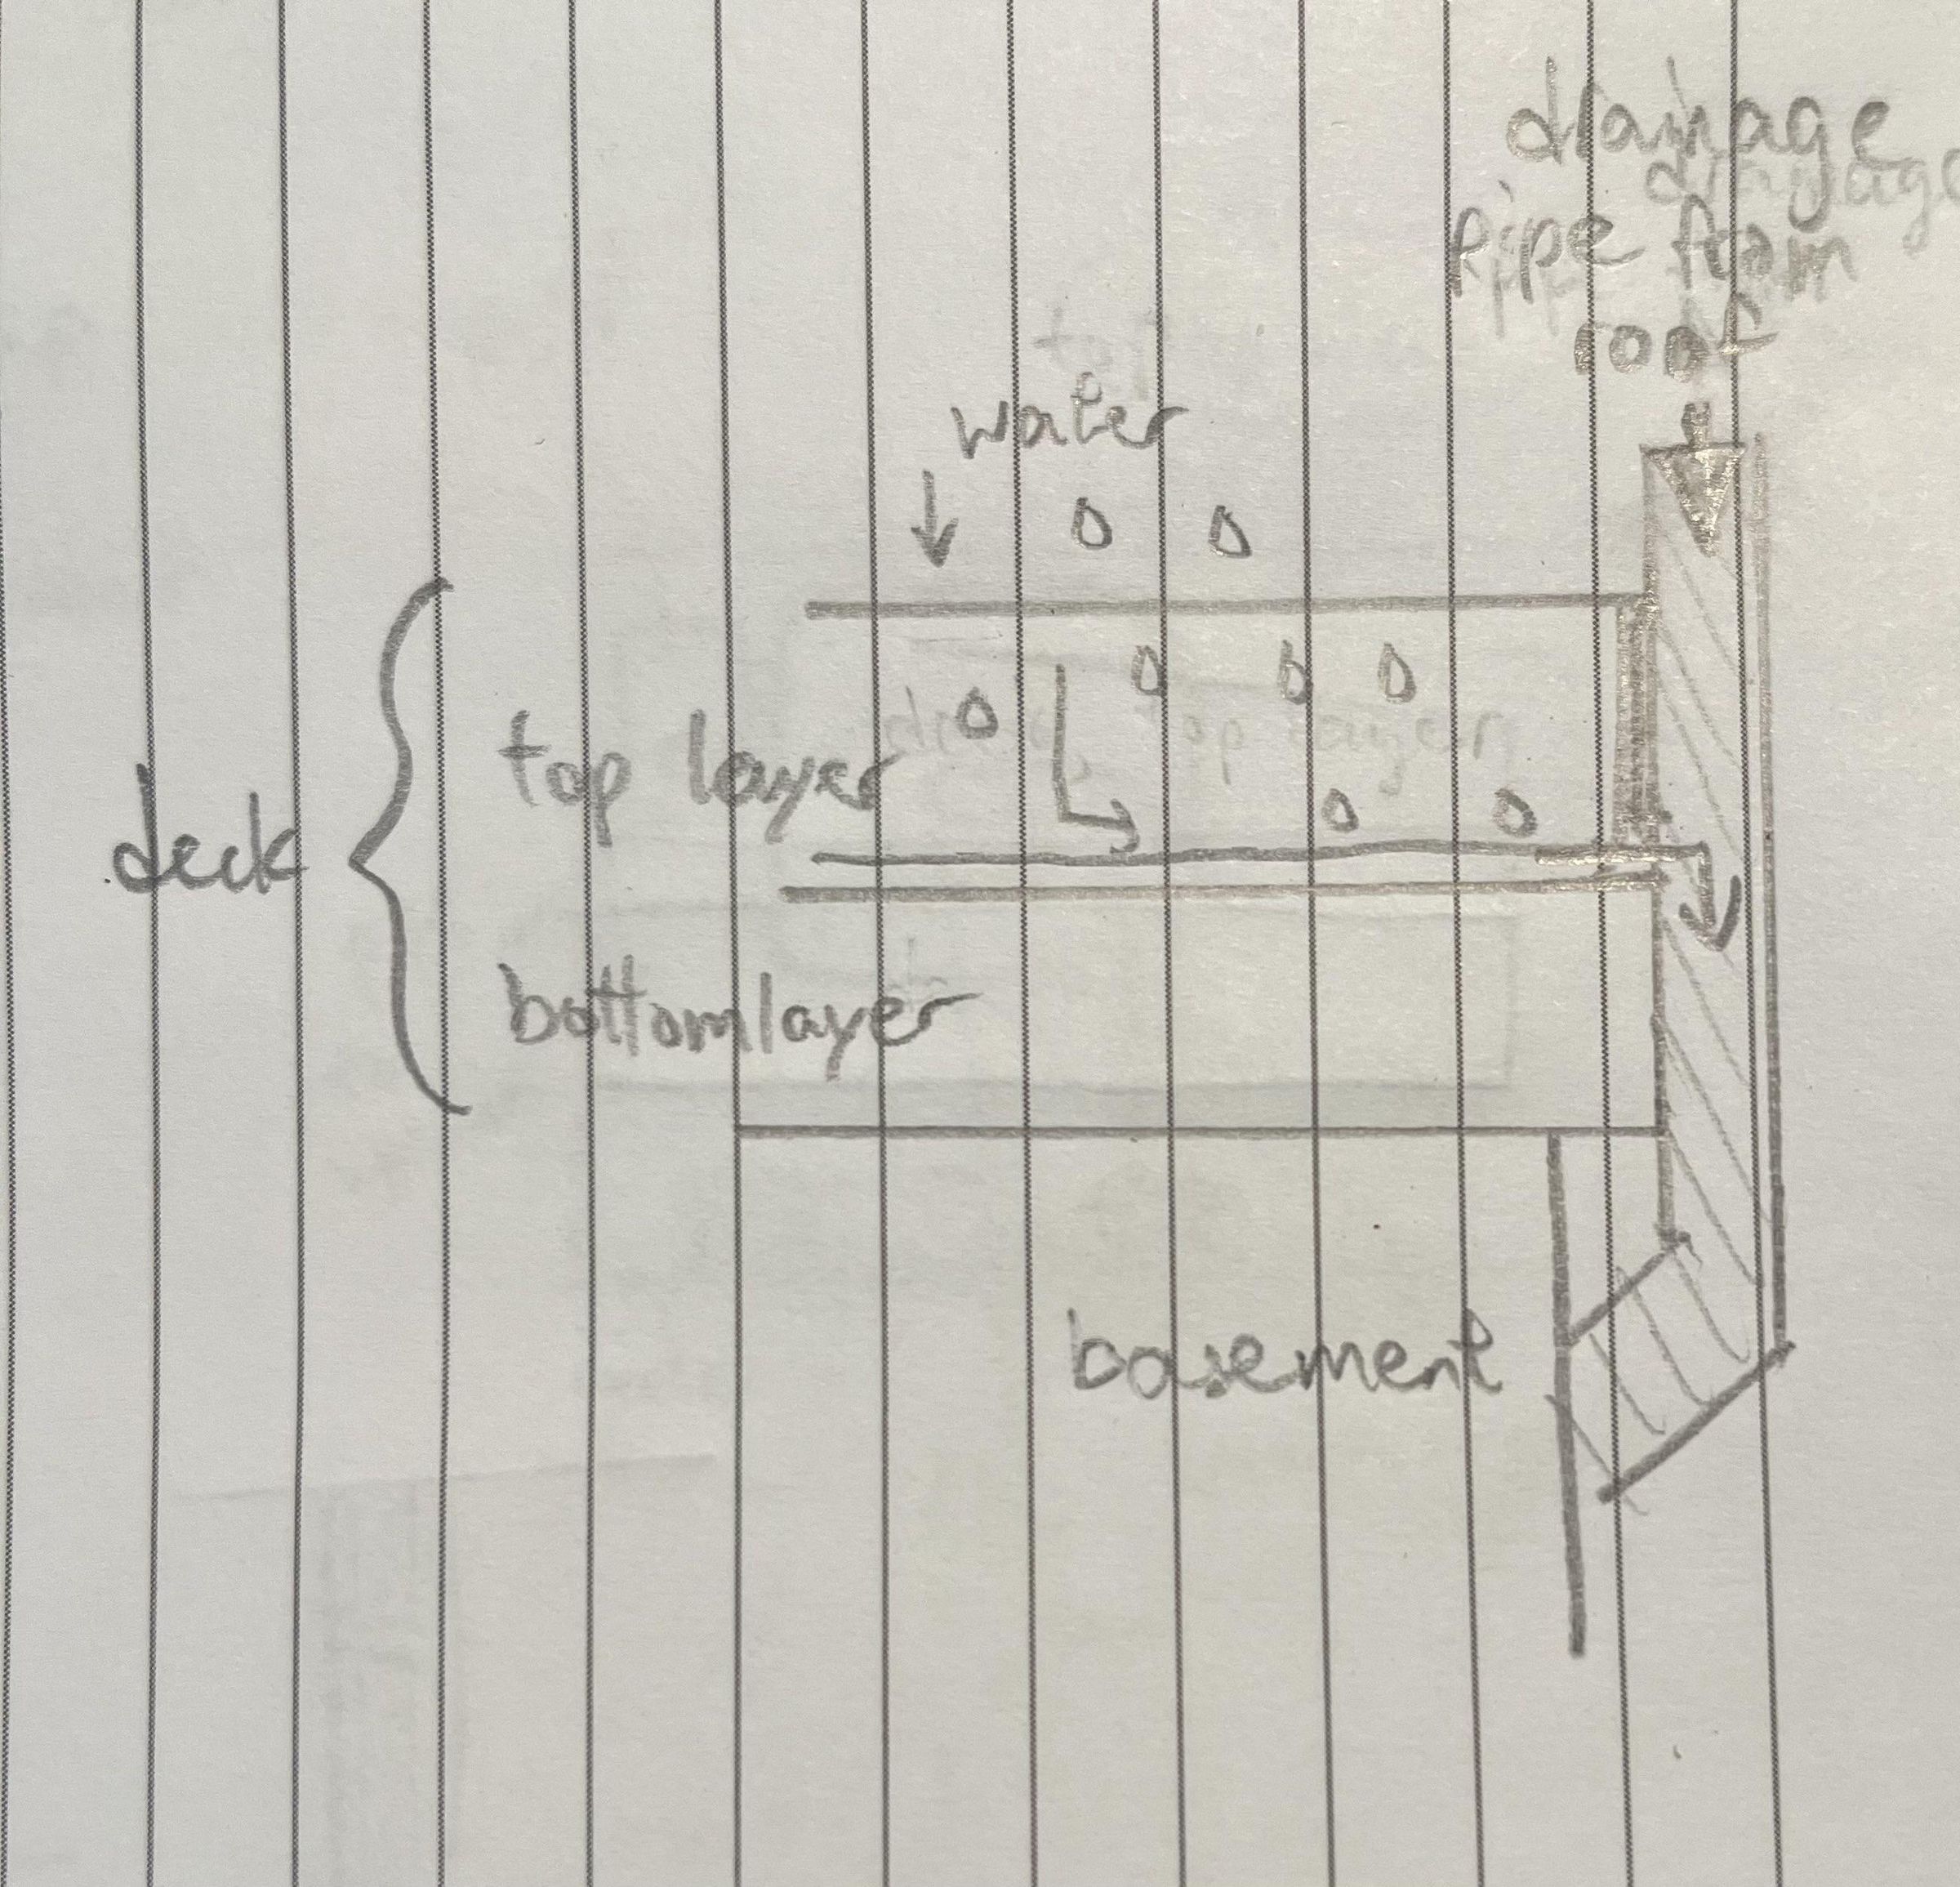 drainage
pipe from
roof
water
top layer
deck
bottom layer
basement